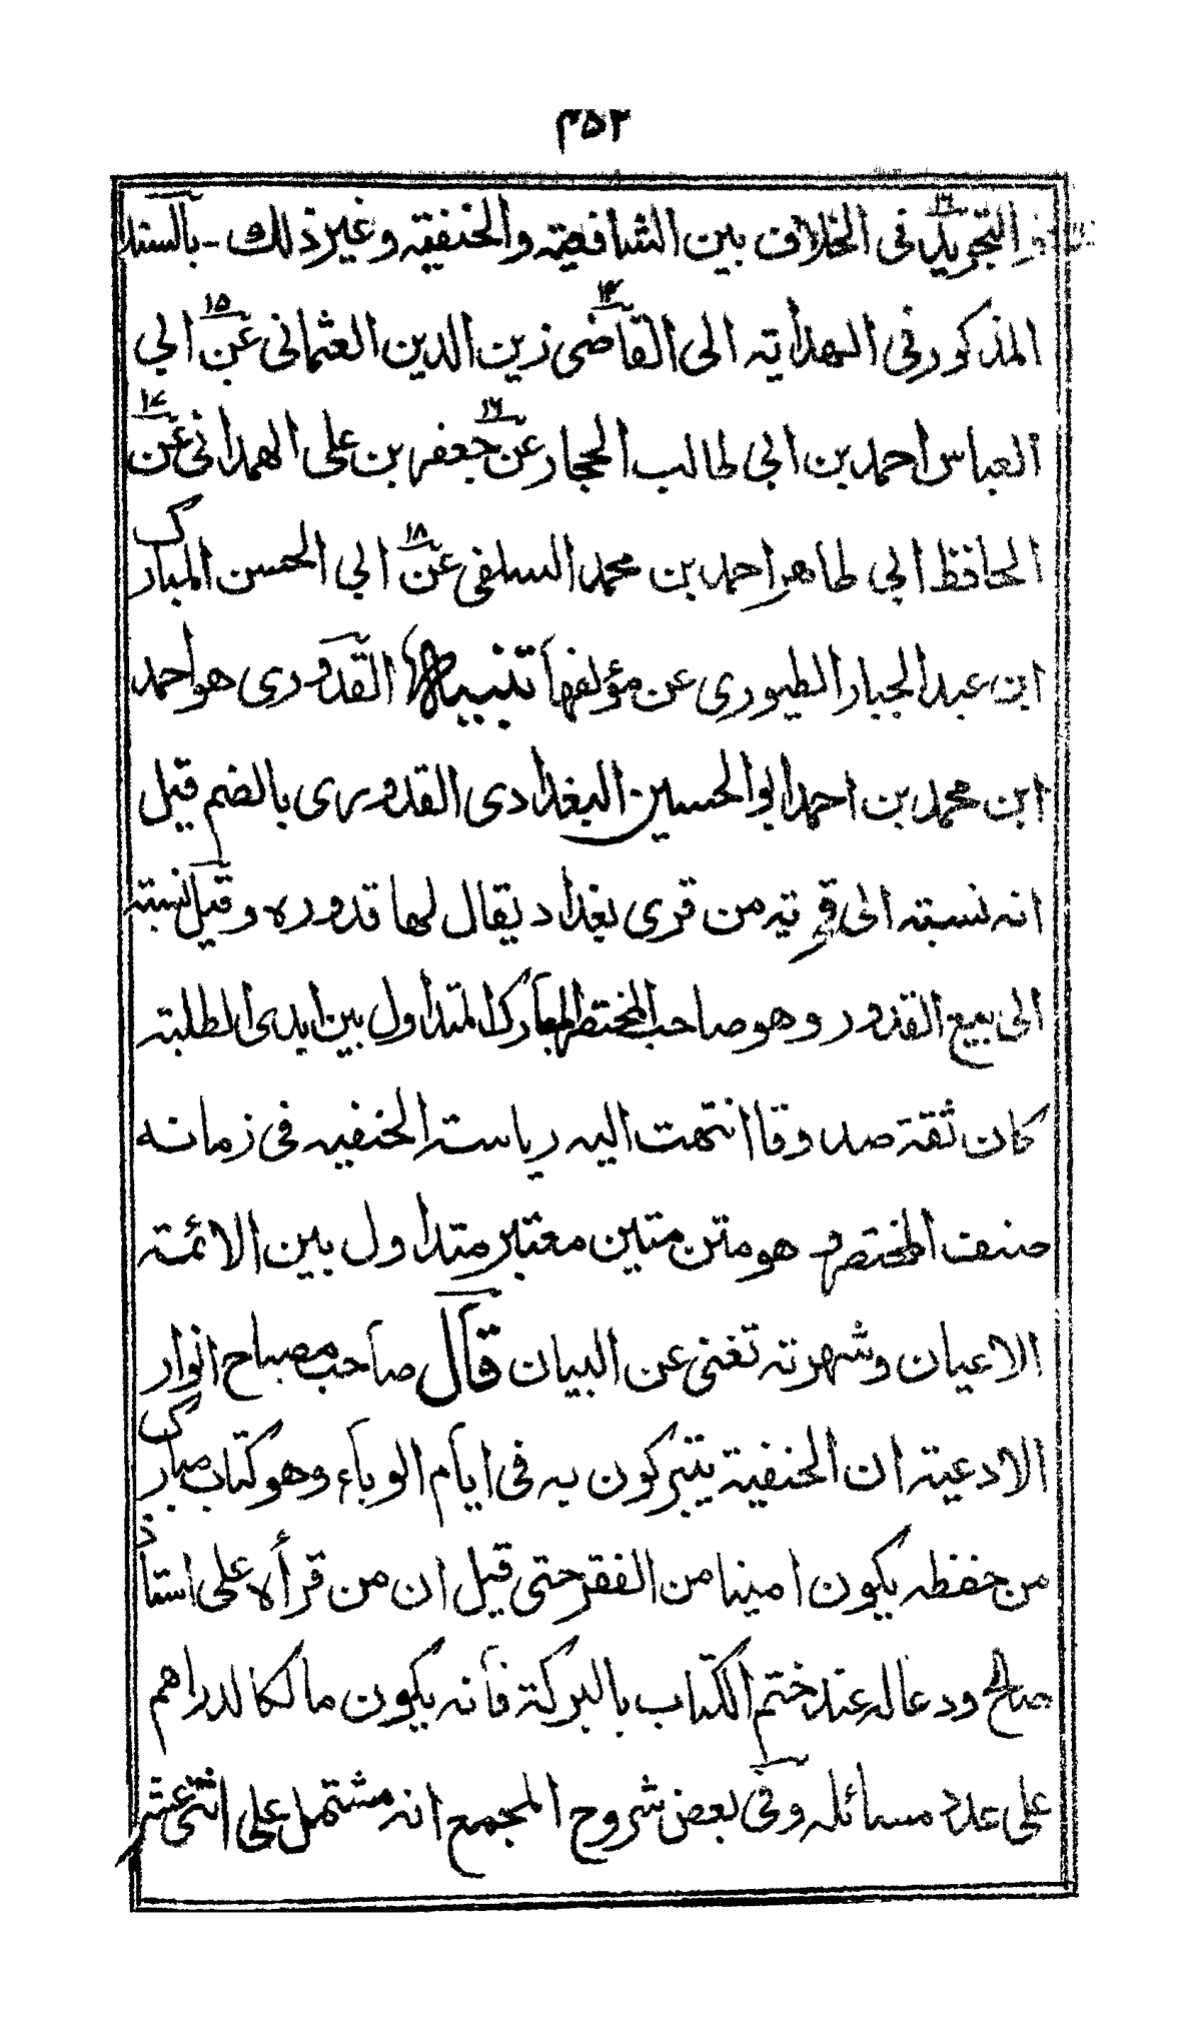 ٤٥٣
التجريد في الخلاف بين الشافعية والحنفية وغير ذلك - بالسند
المذكور في الهداية الى القاضى زين الدين العثمانى عن ابي
العباس احمد بن ابي طالب الحجار عن جعفر بن على الهمدانى عن
الحافظ ابي طاهر احمد بن محمد السلفى عن ابي الحسن المبارك
ابن عبد الجبار الطيورى عن مؤلفها تنبيه القدورى هو احمد
ابن محمد بن احمد ابو الحسين البغدادى القدورى بالضم قيل
انه نسبته الى قرية من قرى بغداد يقال لها قدوره وقيل نسبته
الى بيع القدور وهو صاحب المختصر المبارك المتداول بين ايدى الطلبة
كان ثقة صدوقا انتهت اليه رياسة الحنفيه فى زمانه
صنف المختصر و هو متن متين معتبر متداول بين الائمة
الاعيان وشهرته تغنى عن البيان قال صاحب مصباح انوار
الادعية ان الحنفية يتبركون به فى ايام الوباء وهو كتاب مبارك
من حفظه يكون امينا من الفقر حتى قيل ان من قرأه على استاذ
صالح ودعا له عند ختم الكتاب بالبركة فانه يكون مالكا لدراهم
على عدد مسائله وفى بعض شروح المجمع انه مشتمل على اثنى عشر